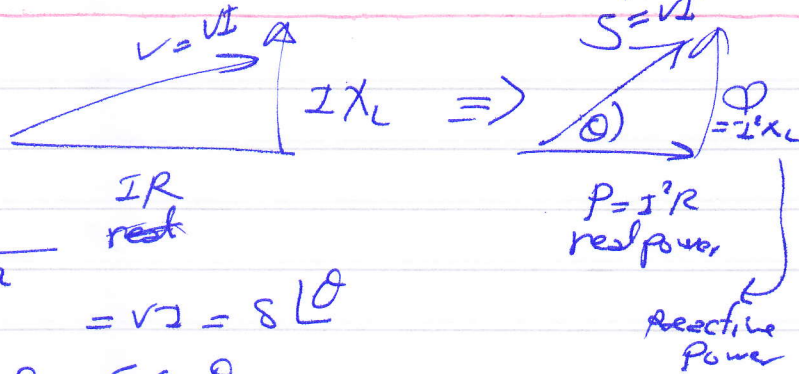 V = VI
IX_L
⇒
IR
real
S = VI
θ
Q
= I²X_L
P = I²R
real power
Reactive
Power
= VI = S∠θ